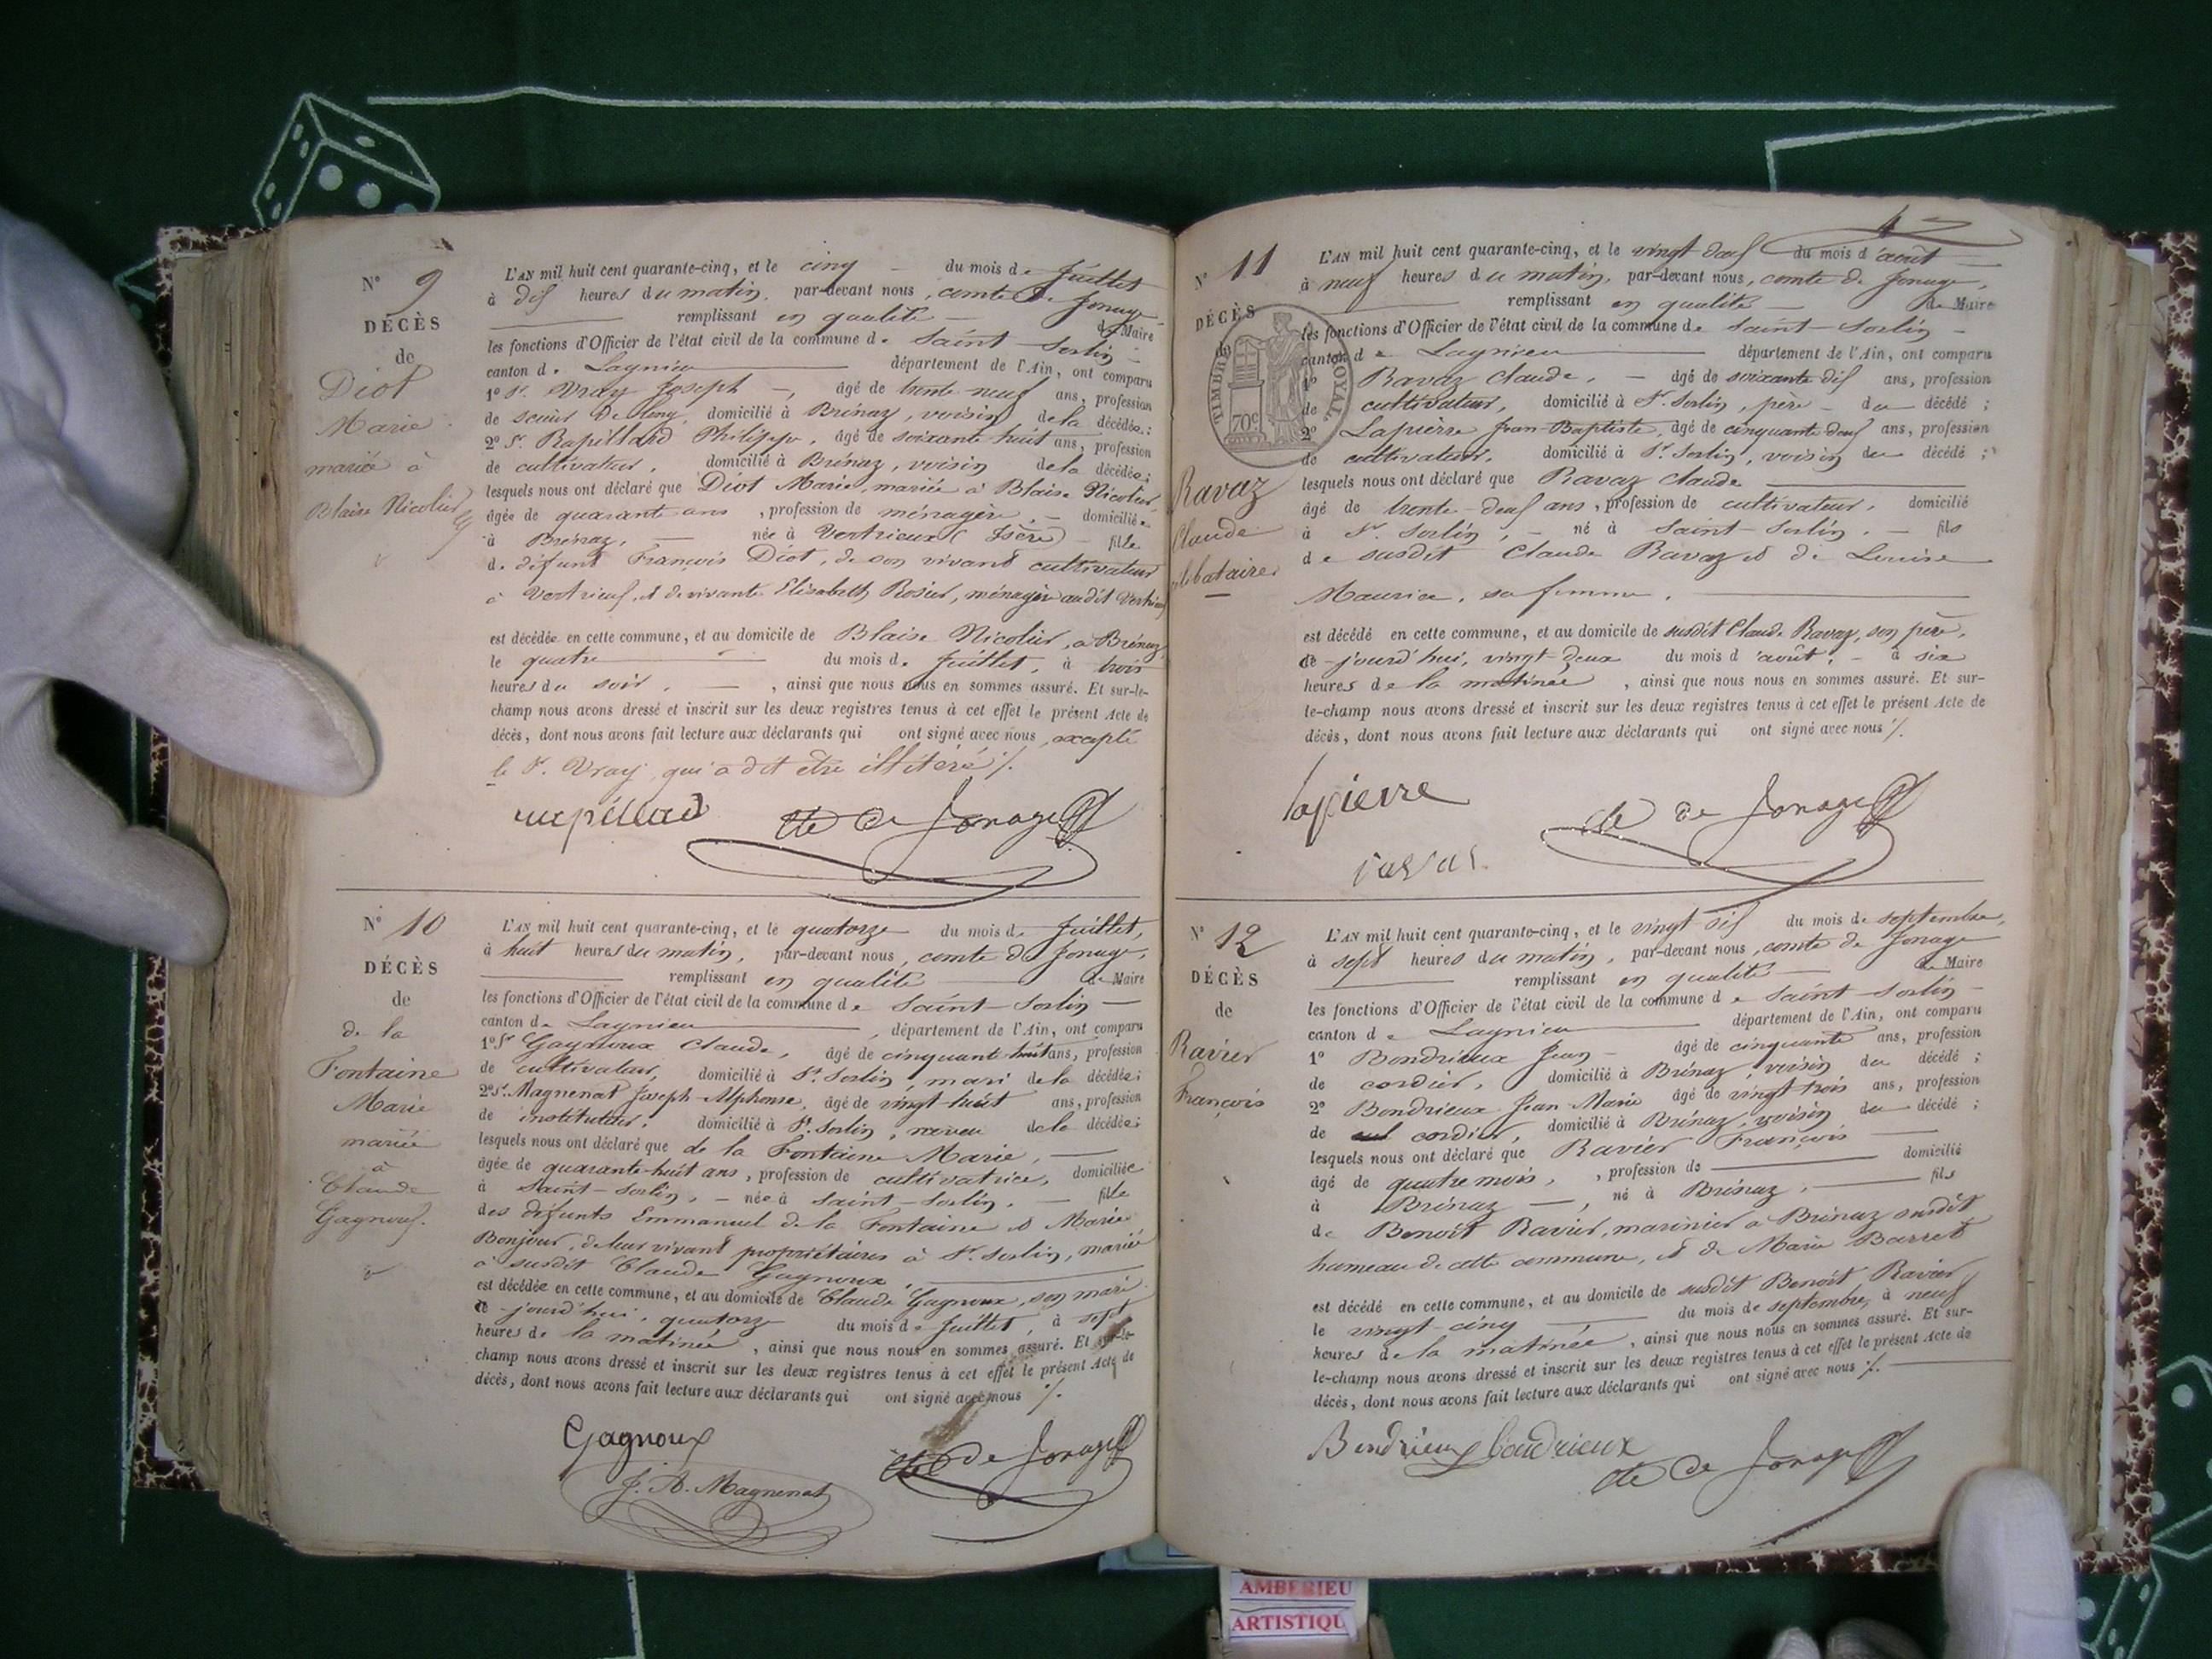 N° 9
DÉCÈS
de
Diot
Marie
mariée à
Blaise Nicolier
L'AN mil huit cent quarante-cinq, et le cinq du mois de Juillet
à dix heures du matin, par-devant nous, comte de Jonage
remplissant en qualité de Maire
les fonctions d'Officier de l'état civil de la commune de Saint-Sorlin
canton de Lagnieu département de l'Ain, ont comparu
1° Sr. Vray Joseph, âgé de trente neuf ans, profession
de scieur de long, domicilié à Brénaz, voisin de la décédée;
2° Sr. Rapillard Philippe, âgé de soixante huit ans, profession
de cultivateur, domicilié à Brénaz, voisin de la décédée;
lesquels nous ont déclaré que Diot Marie, mariée à Blaise Nicolier
âgée de quarante ans, profession de ménagère, domiciliée
à Brénaz, née à Vertrieux (Isère) fille
de défunt François Diot, de son vivant cultivateur
à Vertrieux, & de vivante Elisabeth Rosier, ménagère audit Vertrieux
est décédée en cette commune, et au domicile de Blaise Nicolier, à Brénaz
le quatre du mois de Juillet, à trois
heures du soir, ainsi que nous nous en sommes assuré. Et sur-le-
champ nous avons dressé et inscrit sur les deux registres tenus à cet effet le présent Acte de
décès, dont nous avons fait lecture aux déclarants qui ont signé avec nous, excepté
le Sr. Vray, qui a dit etre illitéré ./.
rapillard Cte de Jonage
N° 10
DÉCÈS
de
de la
Fontaine
Marie
mariée
à
Claude
Gagnoux.
L'AN mil huit cent quarante-cinq, et le quatorze du mois de Juillet,
à huit heures du matin, par-devant nous, comte de Jonage,
remplissant en qualité de Maire
les fonctions d'Officier de l'état civil de la commune de Saint-Sorlin
canton de Lagnieu, département de l'Ain, ont comparu
1° Sr Gagnoux Claude, âgé de cinquante huit ans, profession
de cultivateur, domicilié à St. Sorlin, mari de la décédée;
2° Sr. Magnenat Joseph-Alphonse, âgé de vingt-huit ans, profession
de instituteur, domicilié à St. Sorlin, neveu de la décédée;
lesquels nous ont déclaré que de la Fontaine Marie,
âgée de quarante-huit ans, profession de cultivatrice, domiciliée
à Saint-Sorlin, née à Saint-Sorlin, fille
des defunts Emmanuel de la Fontaine & Marie
Bonjour, de leur vivant propriétaires à St. Sorlin, mariée
à susdit Claude Gagnoux,
est décédée en cette commune, et au domicile de Claude Gagnoux, son mari
ce jourd'hui, quatorze du mois de Juillet, à sept
heures de la matinée, ainsi que nous nous en sommes assuré. Et sur-le-
champ nous avons dressé et inscrit sur les deux registres tenus à cet effet le présent Acte de
décès, dont nous avons fait lecture aux déclarants qui ont signé avec nous ./.
Gagnoux
J. A. Magnenat Cte de Jonage
N° 11
DÉCÈS
de
TIMBRE ROYAL
70c
Ravaz
Claude
célibataire
L'AN mil huit cent quarante-cinq, et le vingt deux du mois d'août
à neuf heures du matin, par-devant nous, comte de Jonage,
remplissant en qualité de Maire
les fonctions d'Officier de l'état civil de la commune de Saint-Sorlin
canton de Lagnieu département de l'Ain, ont comparu
1° Ravaz Claude, âgé de soixante dix ans, profession
de cultivateur, domicilié à St. Sorlin, père du décédé;
2° Lapierre Jean-Baptiste, âgé de cinquante deux ans, profession
de cultivateur, domicilié à St. Sorlin, voisin du décédé;
lesquels nous ont déclaré que Ravaz Claude
âgé de trente-deux ans, profession de cultivateur, domicilié
à St. Sorlin, né à Saint-Sorlin, fils
de susdit Claude Ravaz & de Louise
Maurice, sa femme,
est décédé en cette commune, et au domicile de susdit Claude Ravaz, son père,
ce jourd'hui, vingt-deux du mois d'août, à six
heures de la matinée, ainsi que nous nous en sommes assuré. Et sur-
le-champ nous avons dressé et inscrit sur les deux registres tenus à cet effet le présent Acte de
décès, dont nous avons fait lecture aux déclarants qui ont signé avec nous ./.
lapierre Cte de Jonage
N° 12
DÉCÈS
de
Ravier
François
L'AN mil huit cent quarante-cinq, et le vingt six du mois de septembre,
à sept heures du matin, par-devant nous, comte de Jonage
remplissant en qualité de Maire
les fonctions d'Officier de l'état civil de la commune de Saint-Sorlin
canton de Lagnieu département de l'Ain, ont comparu
1° Bondrieux Jean âgé de cinquante ans, profession
de cordier, domicilié à Brénaz, voisin du décédé;
2° Bondrieux Jean-Marie âgé de vingt trois ans, profession
de cordier, domicilié à Brénaz, voisin du décédé;
lesquels nous ont déclaré que Ravier François
âgé de quatre mois, profession de domicilié
à Brénaz, né à Brénaz, fils
de Benoît Ravier, marinier à Brénaz susdit
hameau de cette commune, & de Marie Barret
est décédé en cette commune, et au domicile de susdit Benoît Ravier
le vingt-cinq du mois de septembre, à neuf
heures de la matinée, ainsi que nous nous en sommes assuré. Et sur-
le-champ nous avons dressé et inscrit sur les deux registres tenus à cet effet le présent Acte de
décès, dont nous avons fait lecture aux déclarants qui ont signé avec nous ./.
Bondrieux bondrieux
Cte de Jonage
AMBERIEU
ARTISTIQU